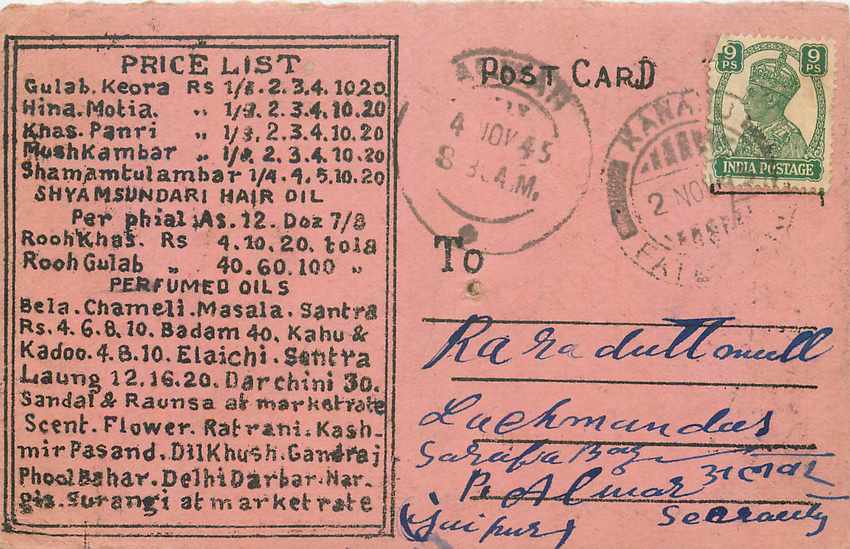 PRICE LIST
Gulab. Keora Rs 1/8. 2. 3. 4. 10. 20
Hina. Motia. „ 1/8. 2. 3. 4. 10. 20
Khas. Panri „ 1/8. 2. 3. 4. 10. 20
Mushkambar „ 1/8. 2. 3. 4. 10. 20
Shamamtulambar 1/4. 4. 5. 10. 20
SHYAMSUNDARI HAIR OIL
Per phial As. 12. Doz 7/8
Rooh Khas. Rs 4. 10. 20. tola
Rooh Gulab „ 40. 60. 100 „
PERFUMED OILS
Bela. Chameli. Masala. Santra
Rs. 4. 6. 8. 10. Badam 40. Kahu &
Kadoo. 4. 8. 10. Elaichi. Santra
Laung 12. 16. 20. Darchini 30.
Sandal & Raunsa at market rate
Scent. Flower. Ratrani. Kash-
mir Pasand. Dil Khush. Gandraj
Phool Bahar. Delhi Darbar. Nar-
gis. Surangi at market rate
POST CARD
9 PS 9 PS
INDIA POSTAGE
4 NOV 45
8 30 A.M.
KANAUJ
2 NOV
To
Lachmandas
P. Alwar अलवर
(Jaipur)